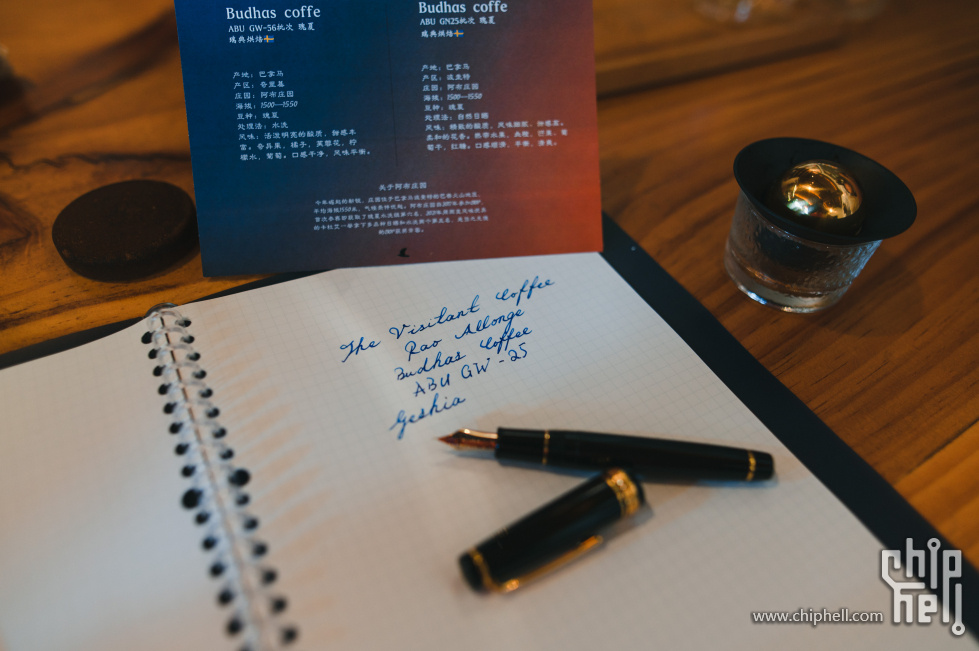 Budhas coffe
ABU GW-56批次 瑰夏
瑞典烘焙🇸🇪
产地: 巴拿马
产区: 奇里基
庄园: 阿布庄园
海拔: 1500—1550
豆种: 瑰夏
处理法: 水洗
风味: 活泼明亮的酸质, 物感丰
富。奇异果, 橘子, 芙蓉花, 柠
檬水, 葡萄。口感干净, 风味平衡。
Budhas coffe
ABU GN25批次 瑰夏
瑞典烘焙🇸🇪
产地: 巴拿马
产区: 波奎特
庄园: 阿布庄园
海拔: 1500—1550
豆种: 瑰夏
处理法: 自然日晒
风味: 精致的酸质, 风味细腻, 物感高。
柔和的花香。热带水果, 央橙, 芒果, 葡
萄干, 红糖。口感顺滑, 平衡,
关于阿布庄园
The Visitant Coffee
Rao Allonge
Budhas Coffee
ABU GW-25
Geshia
www.chiphell.com
chip
hell